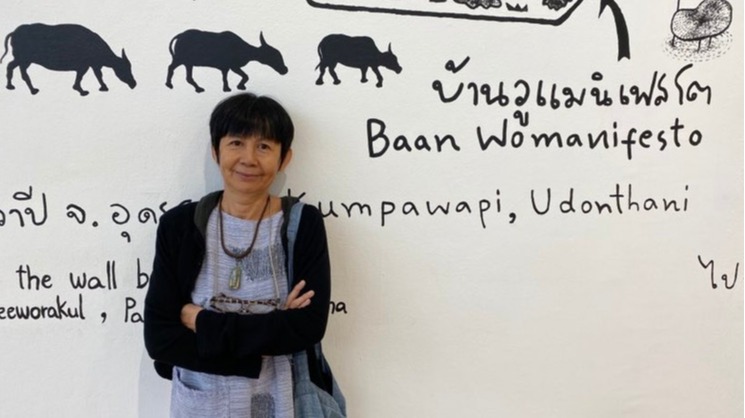 บ้านวูแมนิเฟสโต
Baan Womanifesto
วาปี จ.อุดร umpawapi, Udonthani
the wall
ไป
eeworakul ,